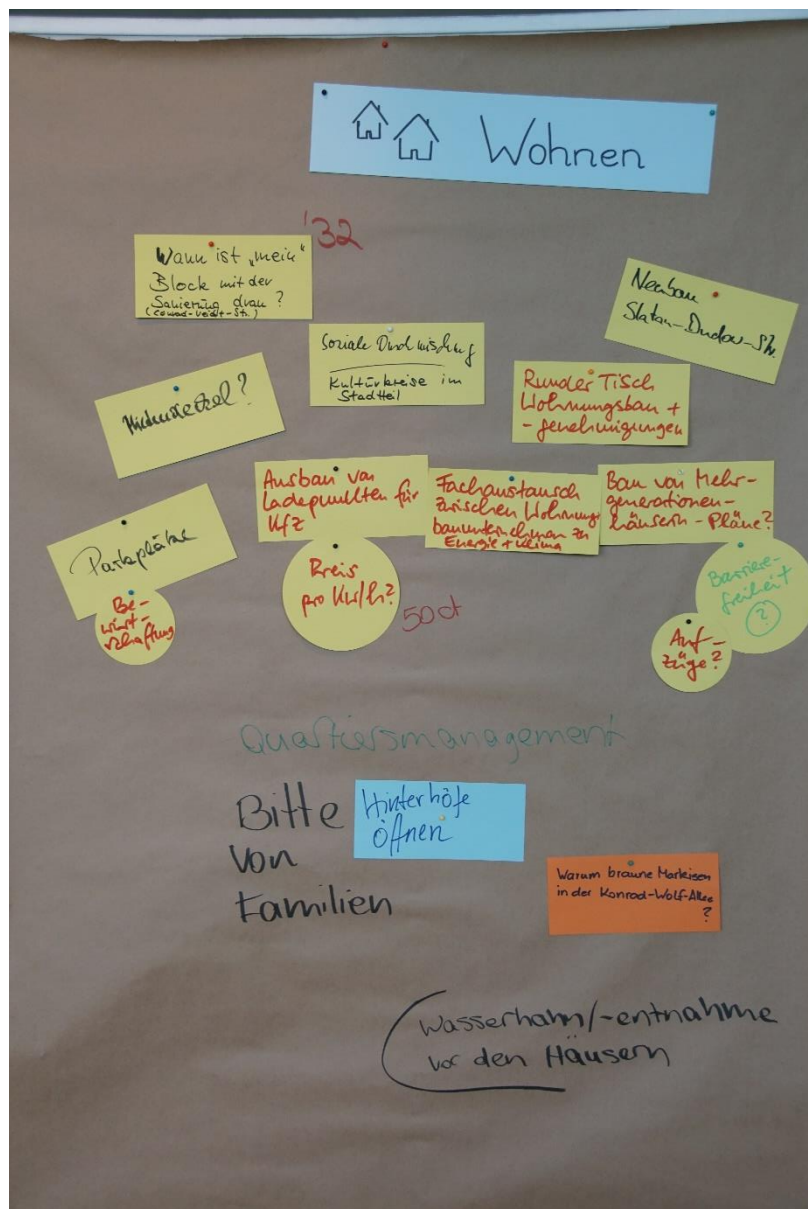 Wohnen
'32
Wann ist „mein"
Block mit der
Sanierung dran?
(Conrad-Veidt-Str.)
Neubau
Slatan-Dudow-Str.
Soziale Durchmischung
Kulturkreise im
Stadtteil
Runder Tisch
Wohnungsbau +
-genehmigungen
Mietwechsel?
Ausbau von
Ladepunkten für
Kfz
Fachaustausch
zwischen Wohnungs
bauunternehmen zu
Energie + Klima
Bau von Mehr-
generationen-
häusern - Pläne?
Parkplätze
Be-
wirt-
schaftung
Preis
pro Kw/h?
50 ct
Barriere-
freiheit
?
Auf-
züge?
Quartiersmanagement
Bitte
von
Familien
Hinterhöfe
öffnen
Warum braune Markisen
in der Konrad-Wolf-Allee
?
Wasserhahn/-entnahme
vor den Häusern